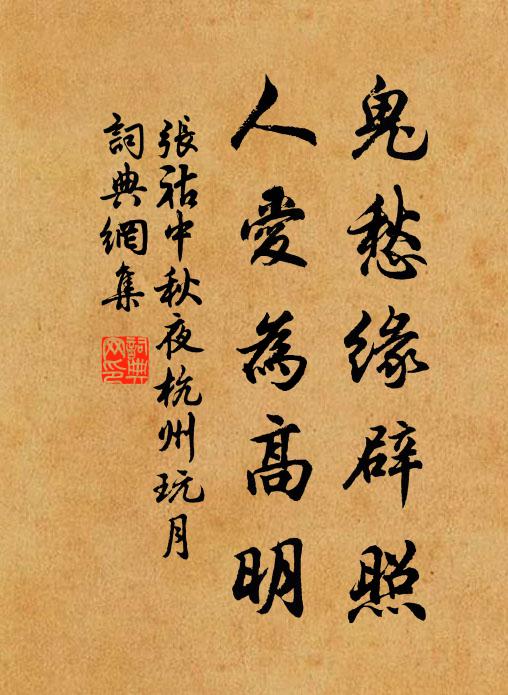 鬼愁緣辟照
人愛為高明
張祜中秋夜杭州玩月
詞典網集
詞典網印